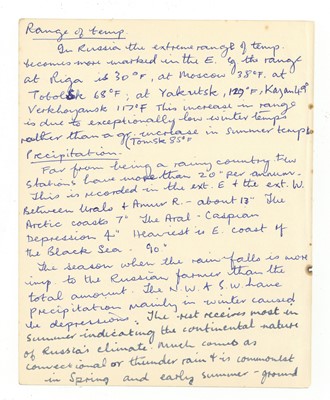 Range of temp.
In Russia the extreme range of temp.
becomes more marked in the E. eg the range
at Riga is 30°F, at Moscow 38°F. at
Tobolsk 68°F; at Yakutsk,
Verkhoyansk 117°F This increase in range
is due to exceptionally low winter temps
rather than a gr. increase in summer temps
(Tomsk 85°F
Precipitation.
Far from being a rainy country few
stations have more than 20" per annum.
This is recorded in the ext. E & the ext. W.
Between Urals & Amur R. - about 13" The
Arctic coasts 7" The Aral - Caspian
Depression 4" Heaviest is E. coast of
the Black Sea - 90"
The season when the rain falls is more
imp. to the Russian farmer than the
total amount. The N.W. & S.W. have
precipitation mainly in winter caused
by depressions. The rest receives most in
summer indicating the continental nature
of Russia's climate. Much comes as
convectional or thunder rain & is commonest
in Spring and early summer - ground